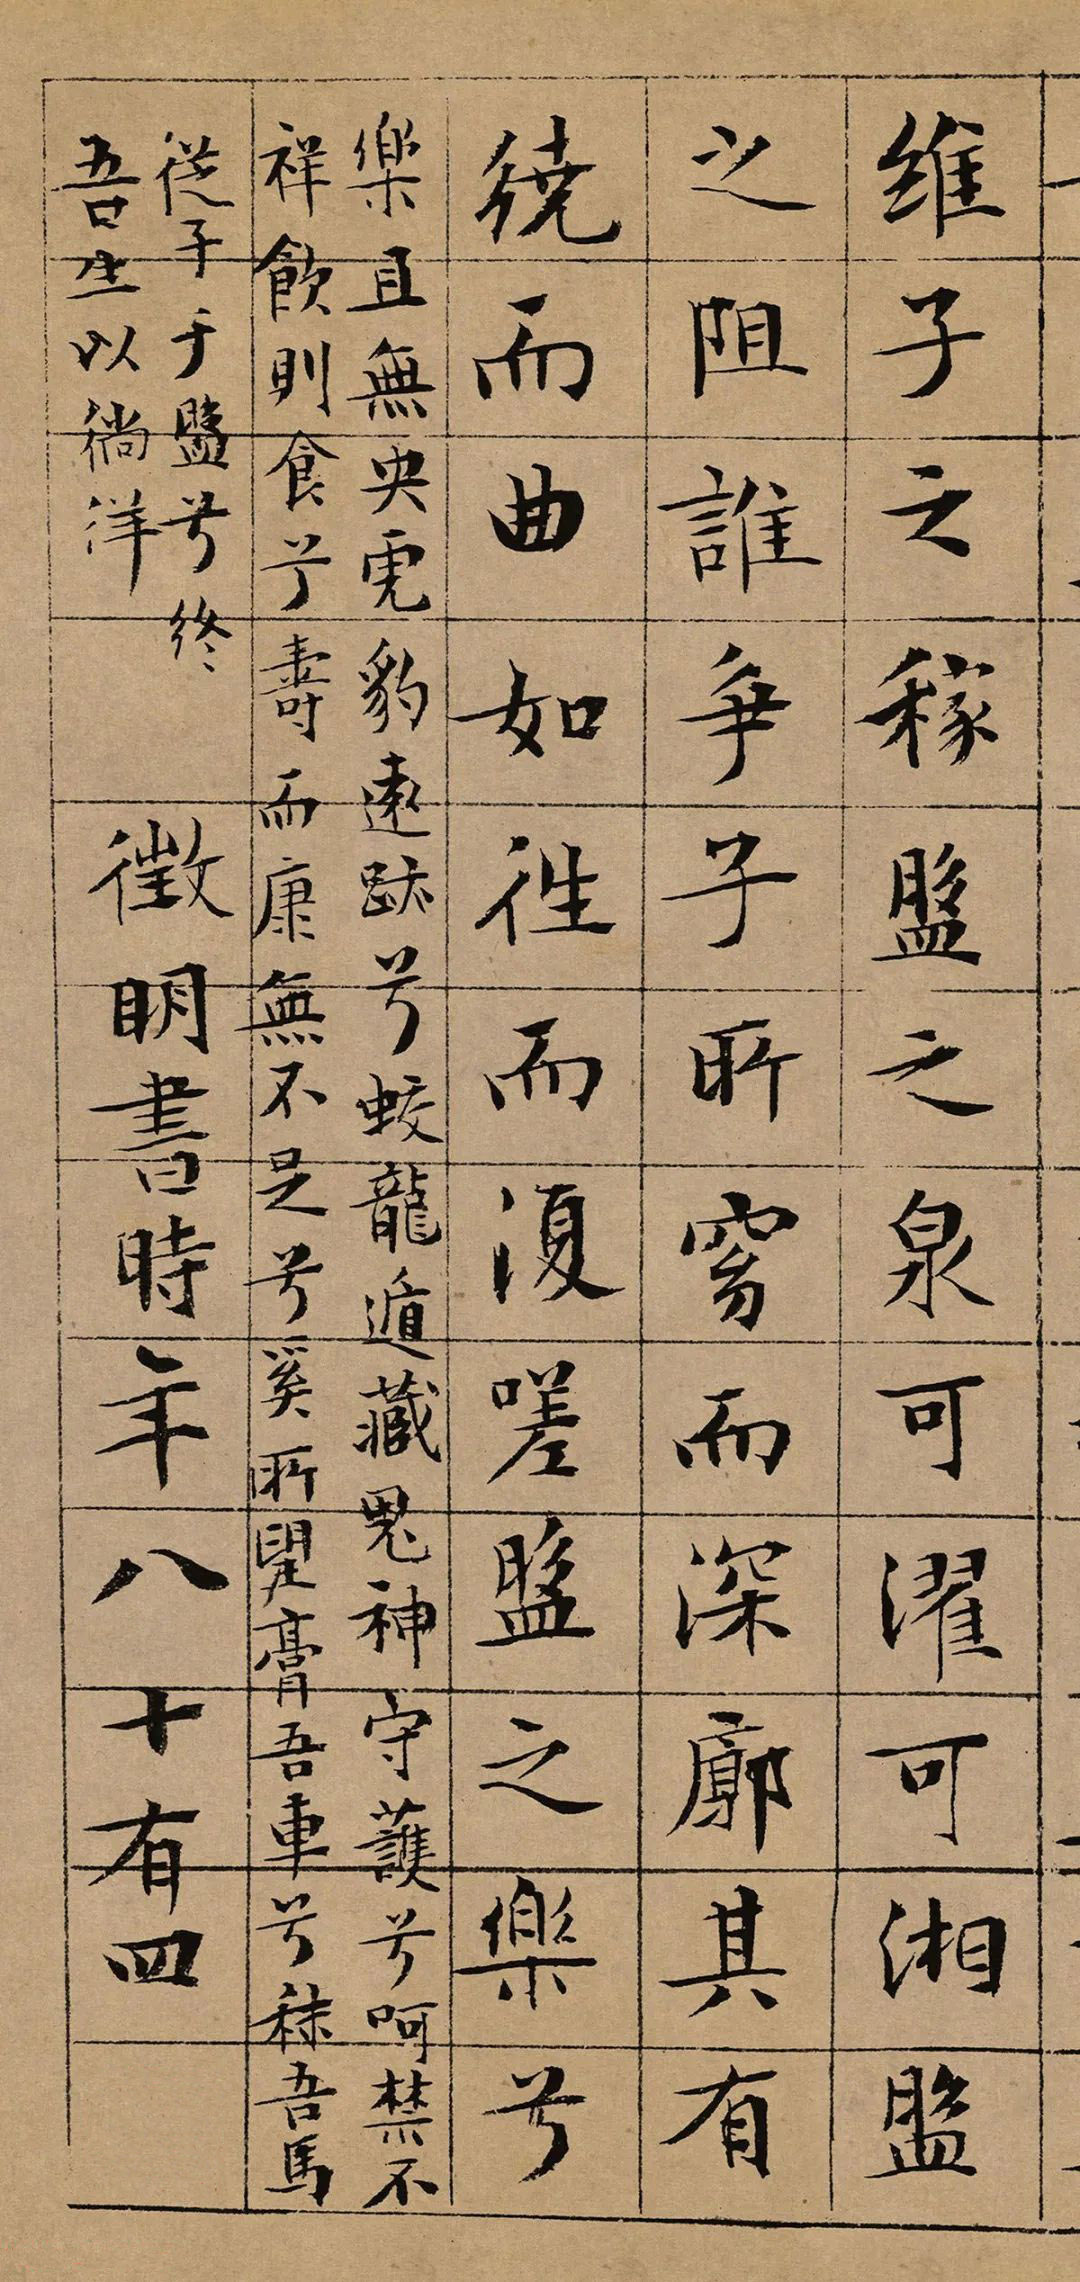 維子之稼盤之泉可濯可湘盤
之阻誰爭子所窈而深廓其有
繞而曲如往而復嗟盤之樂兮
樂且無央虎豹遠跡兮蛟龍遁藏鬼神守護兮呵禁不
祥飲則食兮壽而康無不足兮奚所望膏吾車兮秣吾馬
從子于盤兮終
吾生以徜徉
徵明書時年八十有四